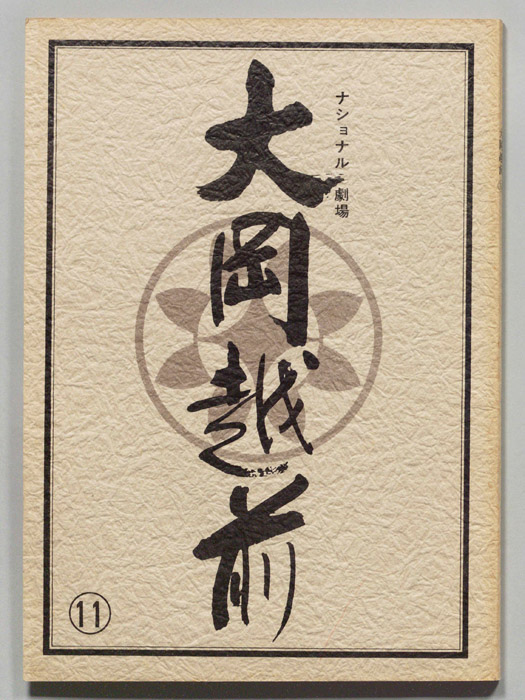 ナショナル劇場
大岡越前
11